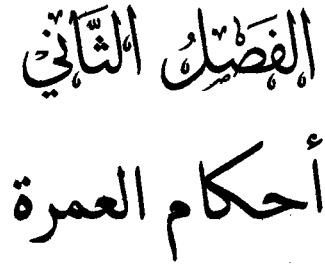 الفَصْلُ الثَّانِي
أحكام العمرة